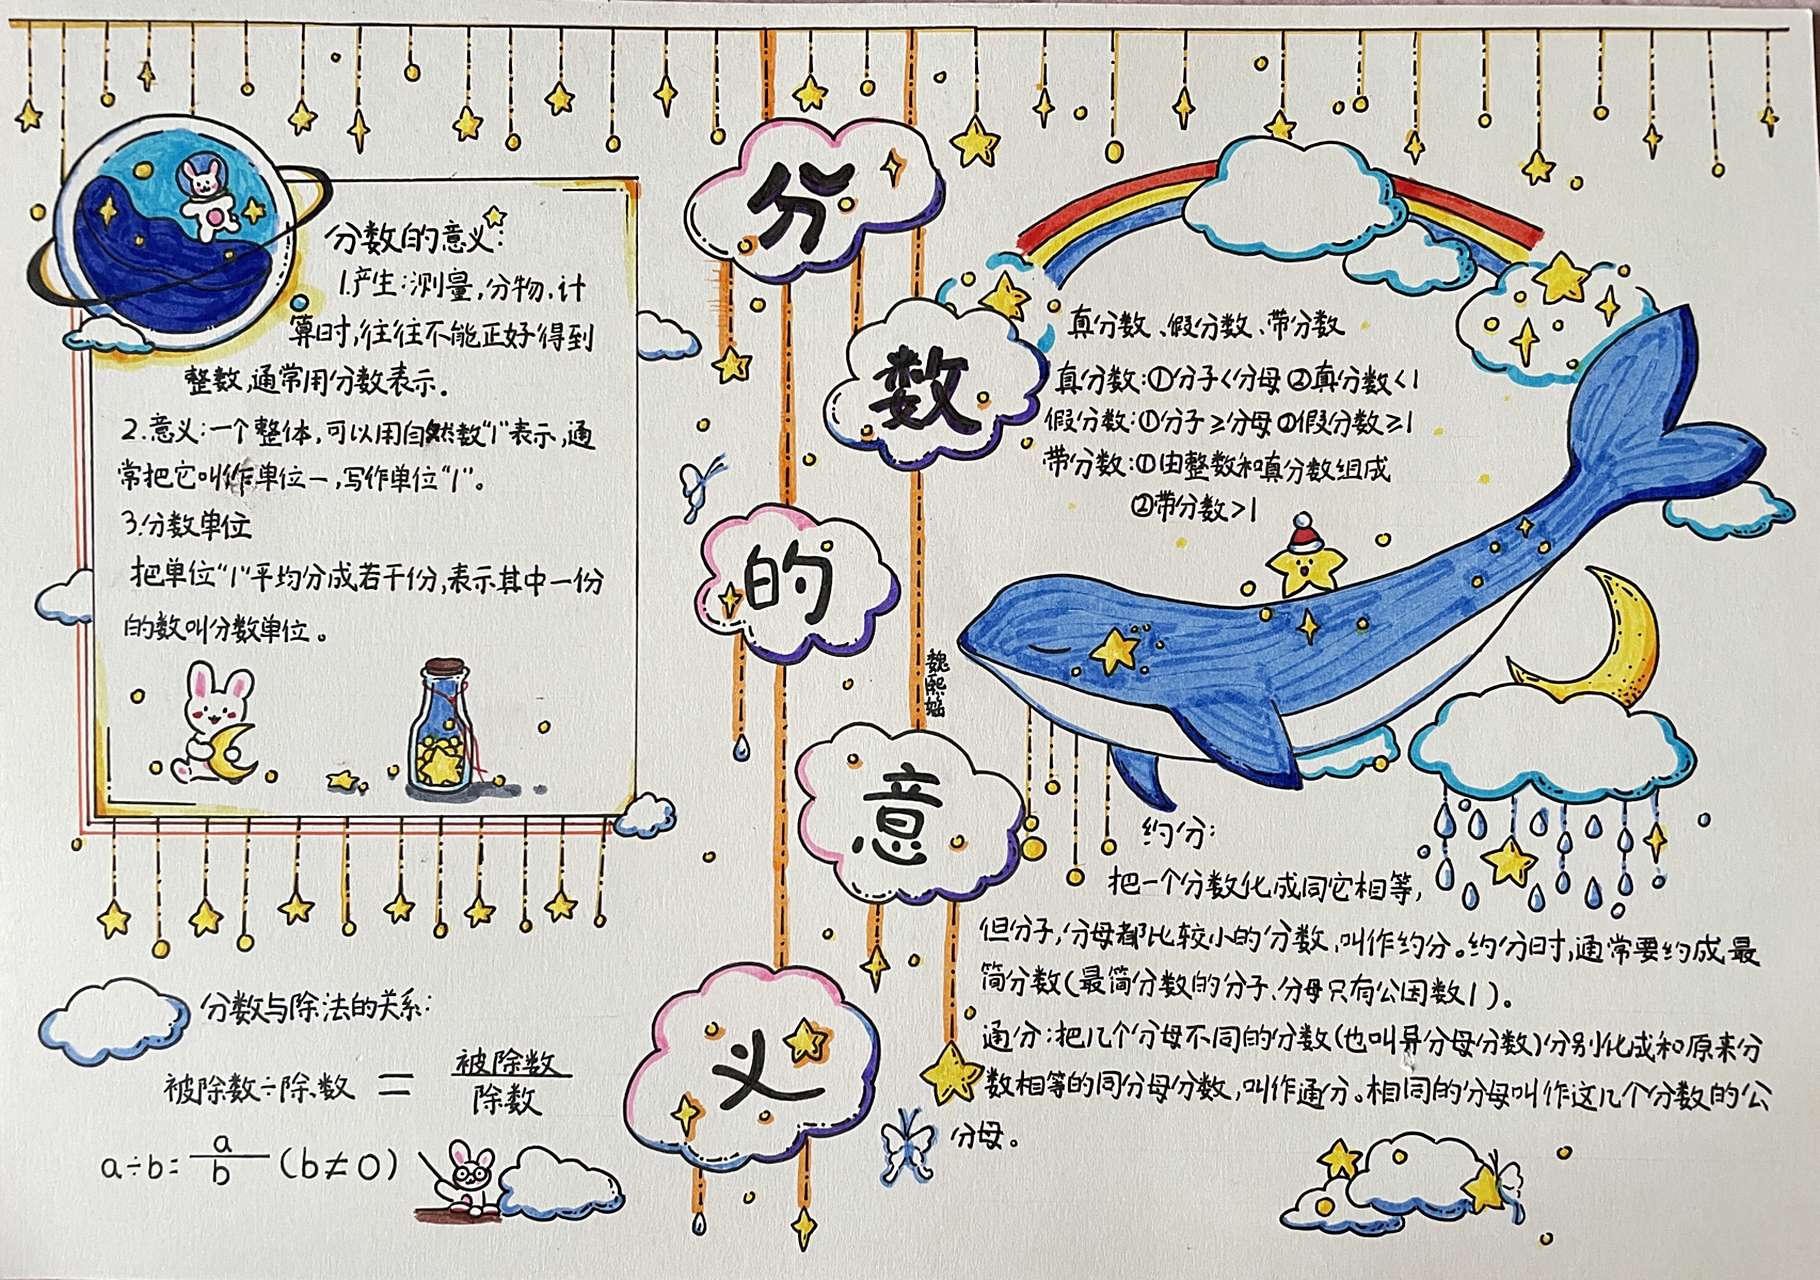 分数的意义
分数的意义:
1.产生:测量,分物,计
算时,往往不能正好得到
整数,通常用分数表示.
2.意义:一个整体,可以用自然数“1”表示,通
常把它叫作单位一,写作单位“1”。
3.分数单位
把单位“1”平均分成若干份,表示其中一份
的数叫分数单位。
分数与除法的关系:
被除数÷除数 = 被除数/除数
a÷b=a/b(b≠0)
真分数、假分数、带分数
真分数:①分子<分母 ②真分数<1
假分数:①分子≥分母 ②假分数≥1
带分数:①由整数和真分数组成
②带分数>1
约分:
把一个分数化成同它相等,
但分子,分母都比较小的分数,叫作约分。约分时,通常要约成最
简分数(最简分数的分子、分母只有公因数1)。
通分:把几个分母不同的分数(也叫异分母分数)分别化成和原来分
数相等的同分母分数,叫作通分。相同的分母叫作这几个分数的公
分母。